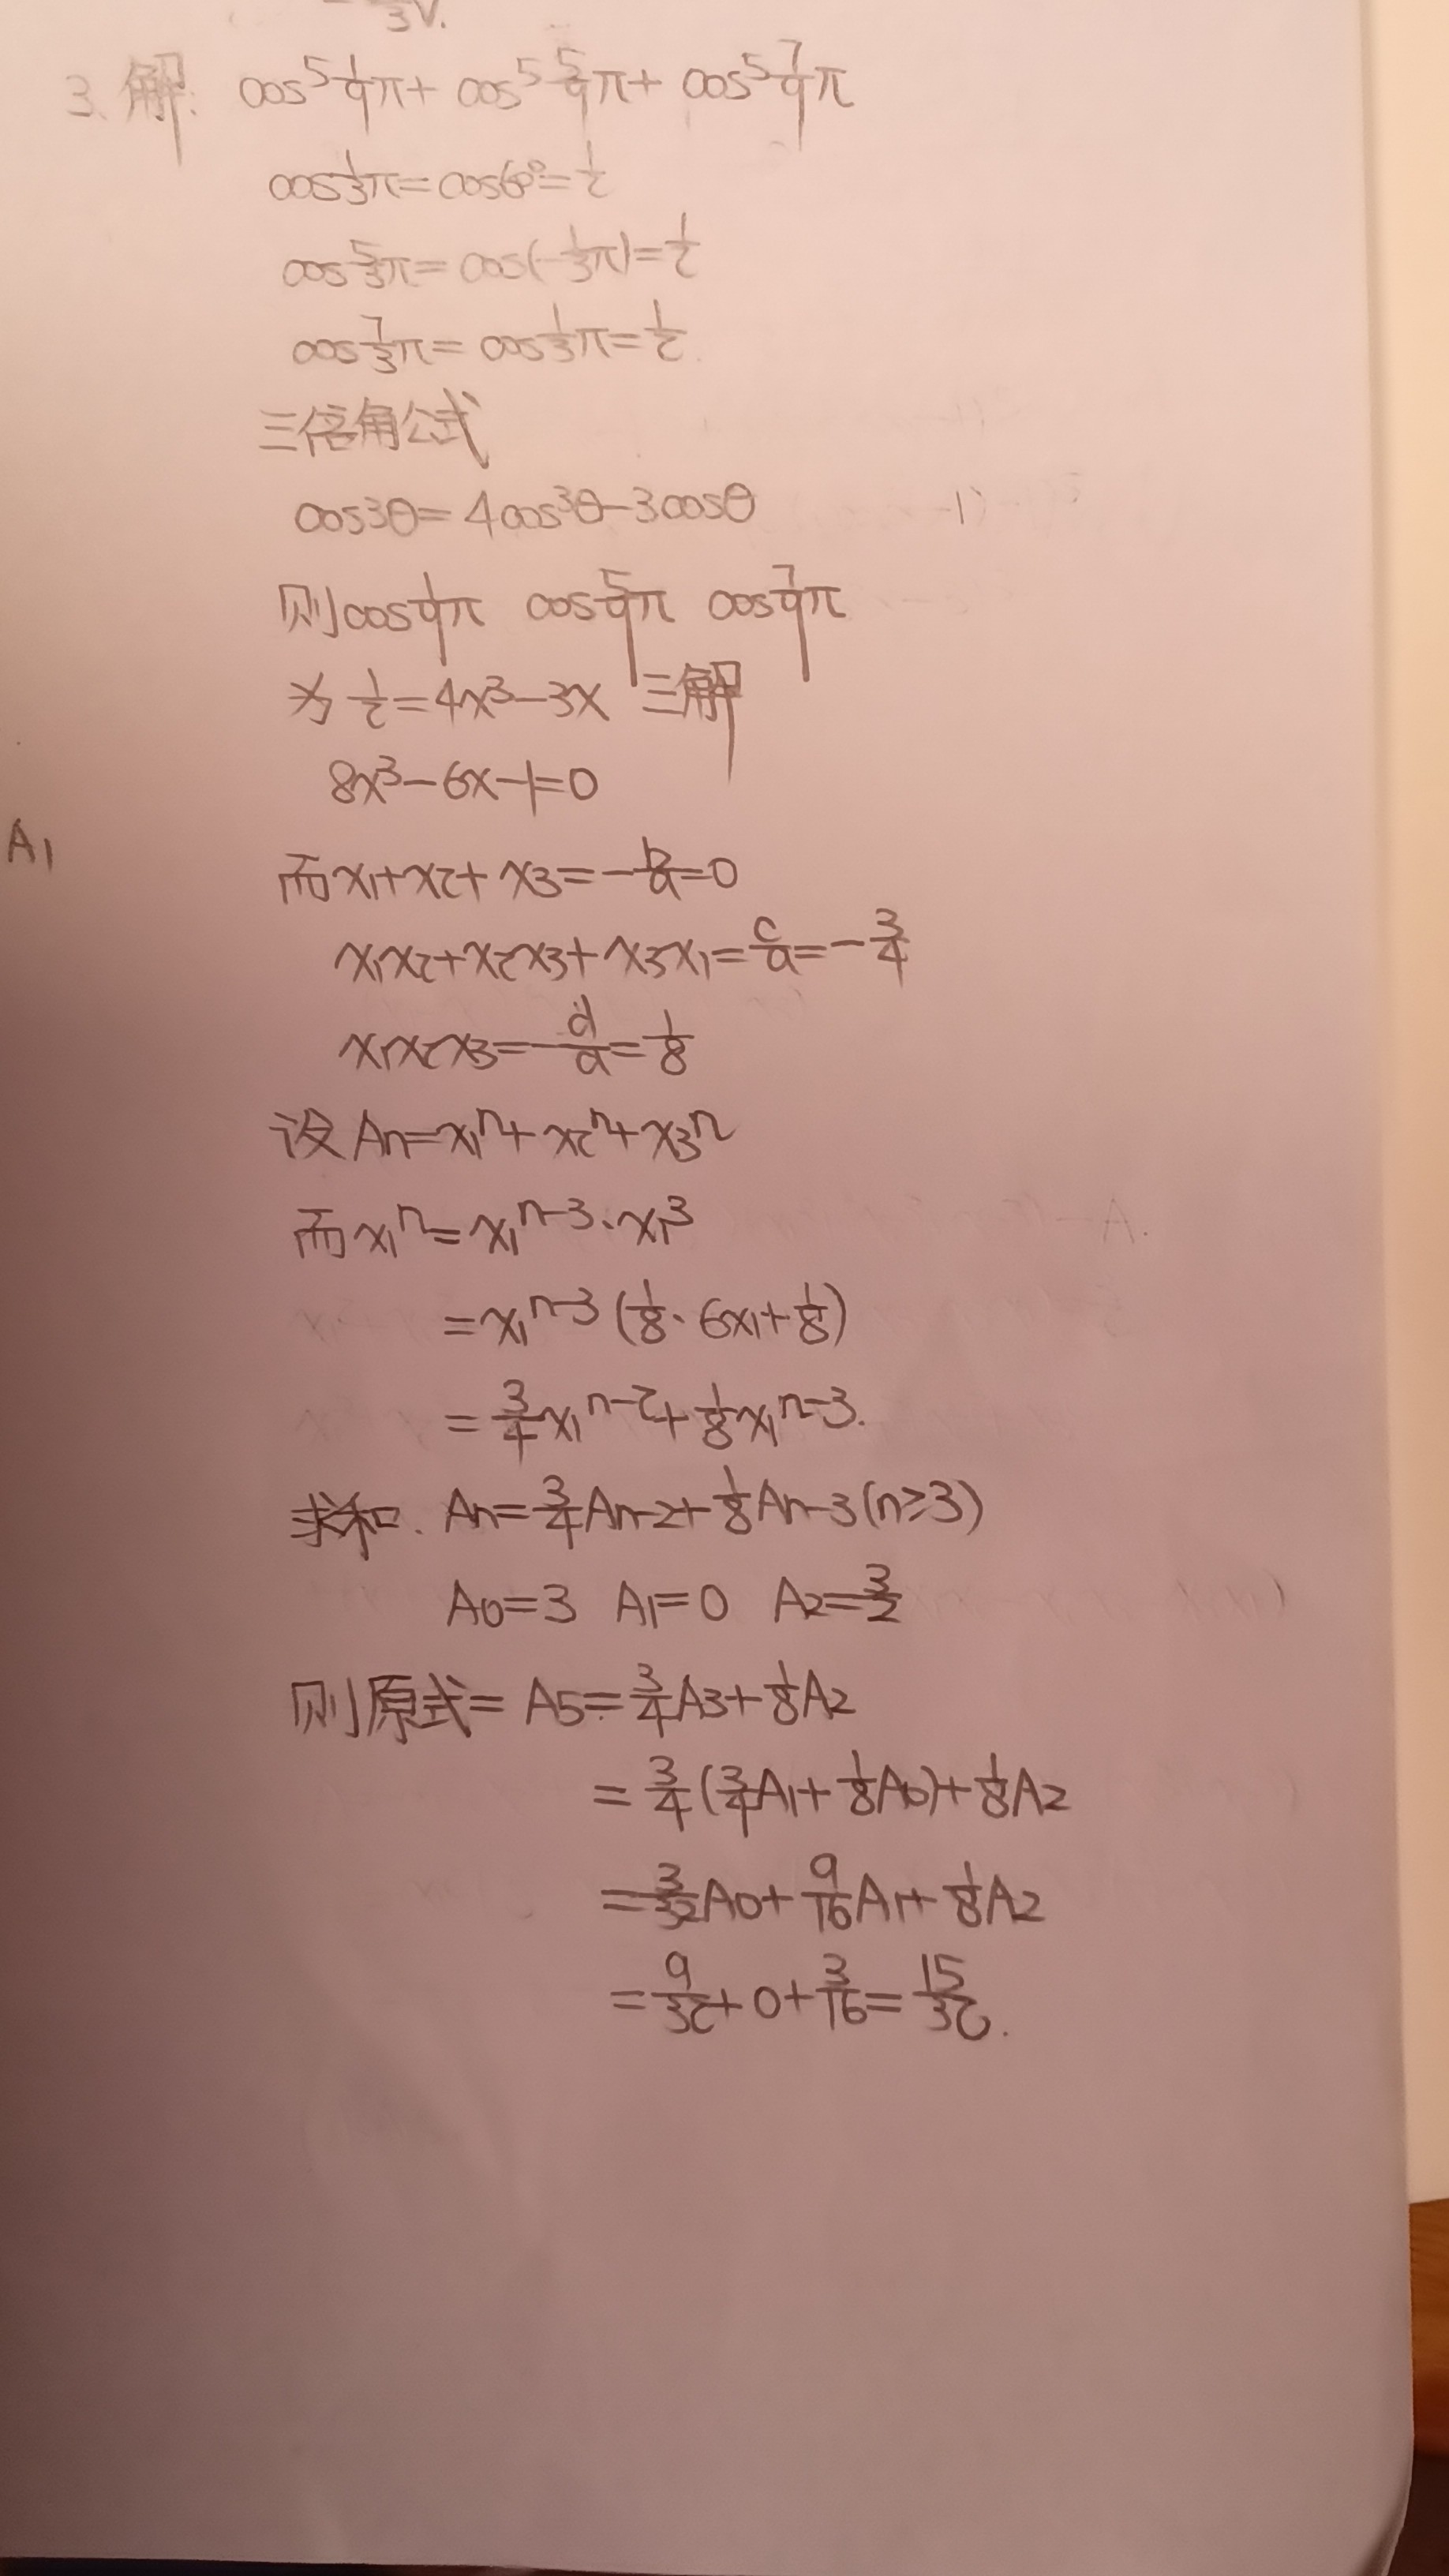 3V.
3. 解: cos⁵1/9π+ cos⁵5/9π+ cos⁵7/9π
cos1/3π=cos60°=1/2
cos5/3π=cos(-1/3π)=1/2
cos7/3π=cos1/3π=1/2.
三倍角公式
cos3θ=4cos³θ-3cosθ
则cos1/9π cos5/9π cos7/9π
为1/2=4x³-3x 三解
8x³-6x-1=0
A1
而x1+x2+x3=-b/a=0
x1x2+x2x3+x3x1=c/a=-3/4
x1x2x3=-d/a=1/8
设An=x1ⁿ+x2ⁿ+x3ⁿ
而x1ⁿ=x1ⁿ⁻³·x1³
=x1ⁿ⁻³(1/8·6x1+1/8)
=3/4x1ⁿ⁻²+1/8x1ⁿ⁻³.
求和. An=3/4An-2+1/8An-3(n≥3)
A0=3 A1=0 A2=3/2
则原式=A5=3/4A3+1/8A2
=3/4(3/4A1+1/8A0)+1/8A2
=3/32A0+9/16A1+1/8A2
=9/32+0+3/16=15/32.